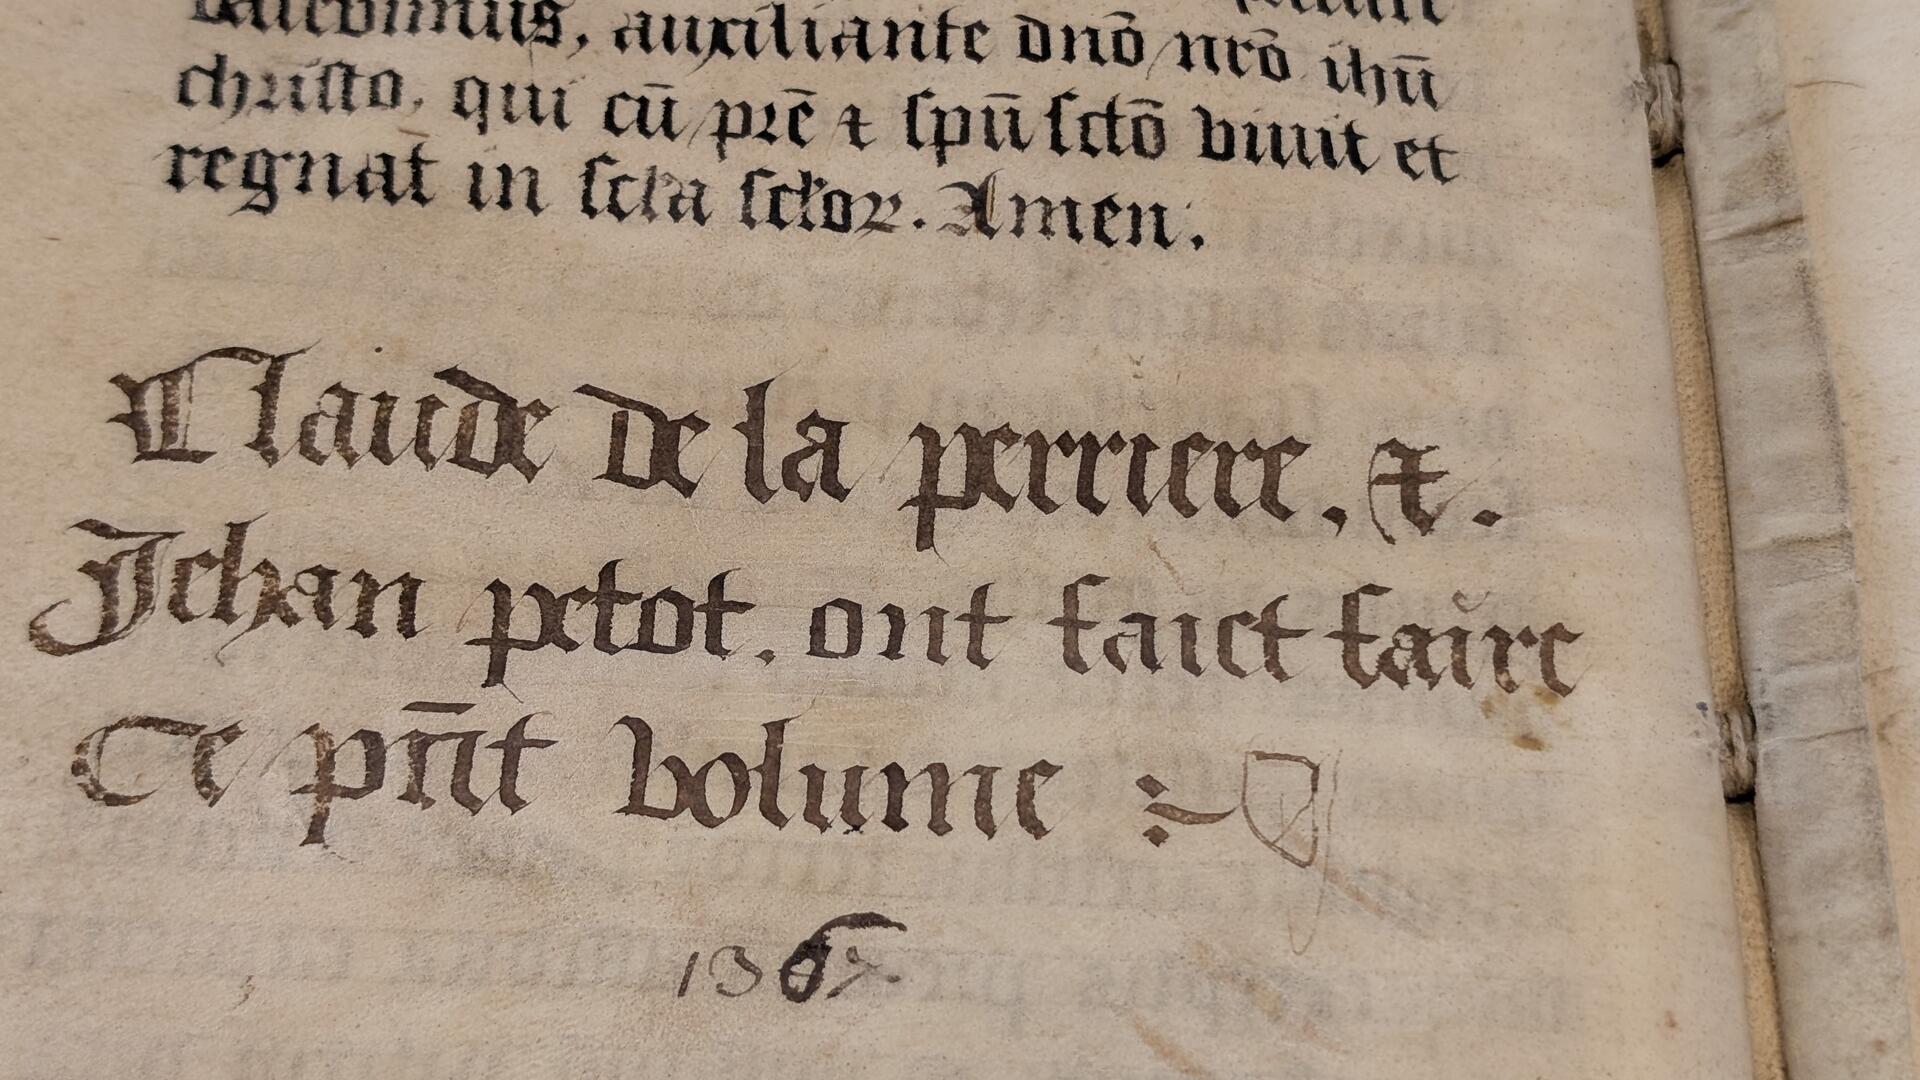 valebimus, auxiliante dn̄o nr̄o ih̄u
christo, qui cū pr̄e ⁊ sp̄u sct̄o vivit et
regnat in scła scłoꝝ. Amen.
Claude de la perriere, ⁊.
Jehan petot. ont faict faire
Ce pn̄t volume